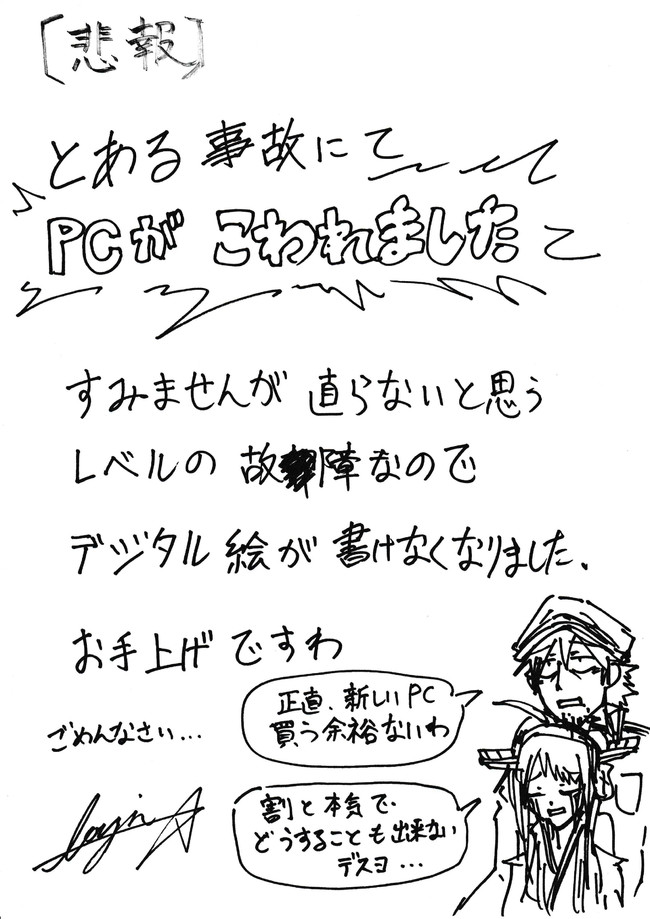 [悲報]
とある事故にて
PCがこわれました
すみませんが直らないと思う
レベルの故障なので
デジタル絵が書けなくなりました。
お手上げですわ
ごめんなさい...
正直、新しいPC
買う余裕ないわ
割と本気で
どうすることも出来ない
デスヨ...